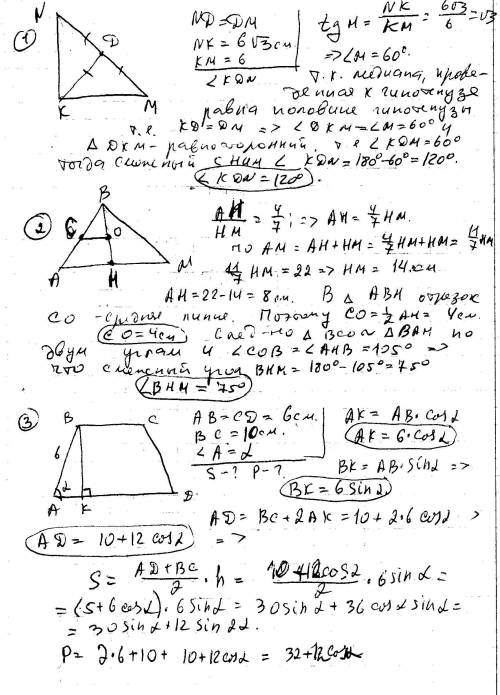 ① N D K M
ND = DM
NK = 6√3 см.
KM = 6
∠KDN
tg M = NK/KM = 6√3/6 = √3
=> ∠M = 60°.
т.к. медиана, прове-
денная к гипотенузе
равна половине гипотенузы
т.е. KD = DM => ∠DKM = ∠M = 60° и
△DKM - равносторонний. т.е ∠KDM = 60°
тогда смежный с ним ∠KDN = 180° - 60° = 120°.
∠KDN = 120°.
② B C O A H M
AH/HM = 4/7; => AH = 4/7 HM.
но AM = AH + HM = 4/7 HM + HM = 11/7 HM
11/7 HM = 22 => HM = 14 см
AH = 22 - 14 = 8 см. В △ABH отрезок
CO - средняя линия. Поэтому CO = 1/2 AH = 4см.
CO = 4см След-но △BCO ~ △BAH по
двум углам и ∠COB = ∠AHB = 105° =>
что смежный угол BHM = 180° - 105° = 75°
∠BHM = 75°
③ B C 6 α A K D
AB = CD = 6см.
BC = 10см.
∠A = α
S - ? P - ?
AK = AB · cosα
AK = 6 · cosα
BK = AB · sinα =>
BK = 6 sinα
AD = BC + 2AK = 10 + 2·6 cosα
AD = 10 + 12 cosα =>
S = (AD + BC)/2 · h = (10 + 12 cosα)/2 · 6 sinα =
= (5 + 6 cosα) · 6 sinα = 30 sinα + 36 cosα sinα =
= 30 sinα + 12 sin 2α.
P = 2·6 + 10 + 10 + 12 cosα = 32 + 12 cosα